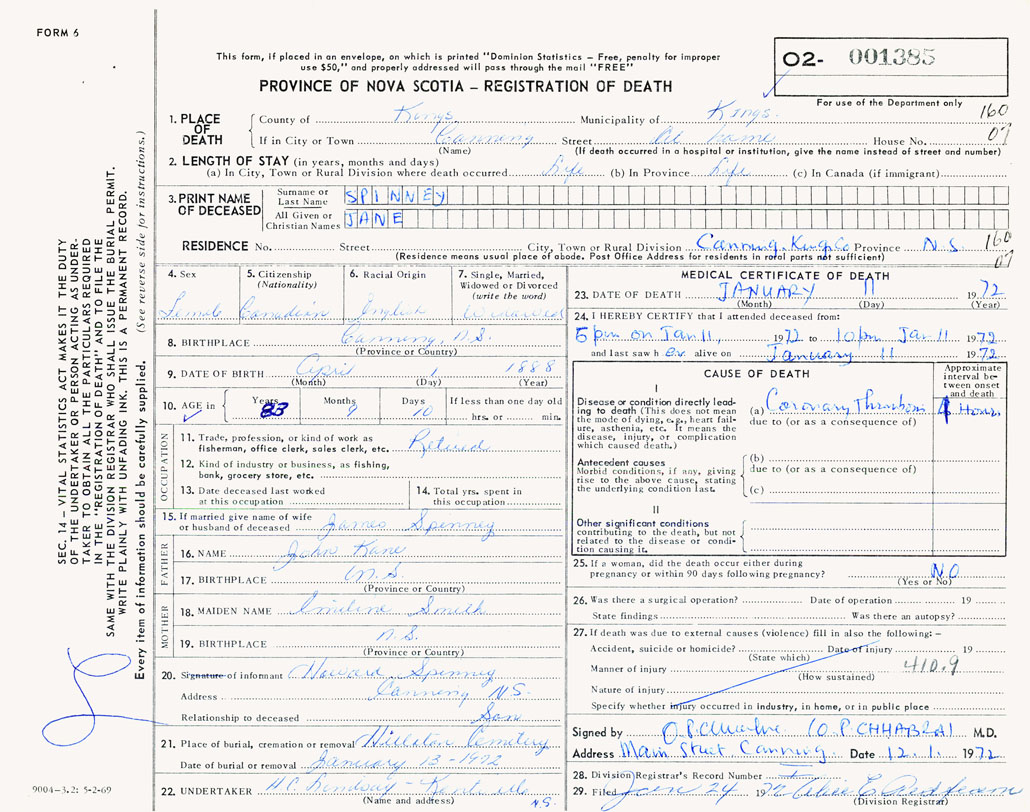 FORM 6
This form, if placed in an envelope, on which is printed "Dominion Statistics – Free, penalty for improper
use $50," and properly addressed will pass through the mail "FREE"
O2- 001385
For use of the Department only
PROVINCE OF NOVA SCOTIA – REGISTRATION OF DEATH
160
07
1. PLACE OF DEATH
County of Kings Municipality of Kings
If in City or Town Canning Street At home House No.
(Name) (If death occurred in a hospital or institution, give the name instead of street and number)
2. LENGTH OF STAY (in years, months and days)
(a) In City, Town or Rural Division where death occurred Life (b) In Province Life (c) In Canada (if immigrant)
3. PRINT NAME OF DECEASED
Surname or Last Name SPINNEY
All Given or Christian Names JANE
RESIDENCE No. Street City, Town or Rural Division Canning, Kings Co Province N S 160
07
(Residence means usual place of abode. Post Office Address for residents in rural parts not sufficient)
4. Sex Female
5. Citizenship (Nationality) Canadian
6. Racial Origin English
7. Single, Married, Widowed or Divorced (write the word) Widowed
8. BIRTHPLACE Canning, N.S.
(Province or Country)
9. DATE OF BIRTH April 1 1888
(Month) (Day) (Year)
10. AGE in Years 83 Months 9 Days 10 If less than one day old hrs. or min.
OCCUPATION
11. Trade, profession, or kind of work as fisherman, office clerk, sales clerk, etc. Retired
12. Kind of industry or business, as fishing, bank, grocery store, etc.
13. Date deceased last worked at this occupation
14. Total yrs. spent in this occupation
15. If married give name of wife or husband of deceased James Spinney
FATHER
16. NAME John Kane
17. BIRTHPLACE N.S.
(Province or Country)
MOTHER
18. MAIDEN NAME Emiline Smith
19. BIRTHPLACE N.S.
(Province or Country)
20. Signature of informant Howard Spinney
Address Canning N.S.
Relationship to deceased Son
21. Place of burial, cremation or removal Cemetery
Date of burial or removal January 13-1972
22. UNDERTAKER H.C. Lindsay - Kentville N.S.
(Name and address)
MEDICAL CERTIFICATE OF DEATH
23. DATE OF DEATH JANUARY 11 1972
(Month) (Day) (Year)
24. I HEREBY CERTIFY that I attended deceased from:
5 pm on Jan 11, 1972 to 10 pm Jan 11 1972
and last saw her alive on January 11 1972
CAUSE OF DEATH
Approximate interval between onset and death
I
Disease or condition directly leading to death (This does not mean the mode of dying, e.g., heart failure, asthenia, etc. It means the disease, injury, or complication which caused death.)
(a) Coronary Thrombosis Hours
due to (or as a consequence of)
Antecedent causes
Morbid conditions, if any, giving rise to the above cause, stating the underlying condition last.
(b)
due to (or as a consequence of)
(c)
II
Other significant conditions
contributing to the death, but not related to the disease or condition causing it.
25. If a woman, did the death occur either during pregnancy or within 90 days following pregnancy? NO
(Yes or No)
26. Was there a surgical operation? Date of operation 19
State findings Was there an autopsy?
27. If death was due to external causes (violence) fill in also the following: –
Accident, suicide or homicide? Date of injury 19
(State which)
Manner of injury 410.9
(How sustained)
Nature of injury
Specify whether injury occurred in industry, in home, or in public place
Signed by (O.P. CHHABRA) M.D.
Address Main Street Canning. Date 12.1. 1972
28. Division Registrar's Record Number
29. Filed Jan 24 19
(Division Registrar)
SEC. 14 – VITAL STATISTICS ACT MAKES IT THE DUTY
OF THE UNDERTAKER OR PERSON ACTING AS UNDER-
TAKER TO OBTAIN ALL THE PARTICULARS REQUIRED
IN THE "REGISTRATION OF DEATH" AND TO FILE THE
SAME WITH THE DIVISION REGISTRAR WHO SHALL ISSUE THE BURIAL PERMIT.
WRITE PLAINLY WITH UNFADING INK. THIS IS A PERMANENT RECORD.
Every item of information should be carefully supplied. (See reverse side for instructions.)
9004-3.2: 5-2-69